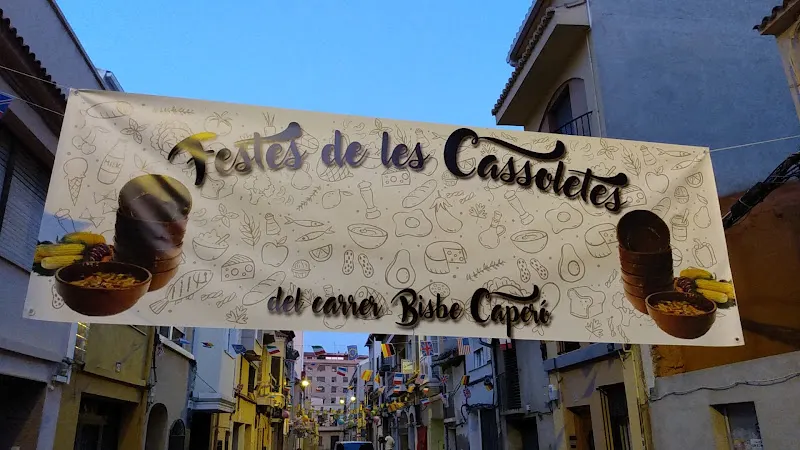 Festes de les Cassoletes
del carrer Bisbe Caperó